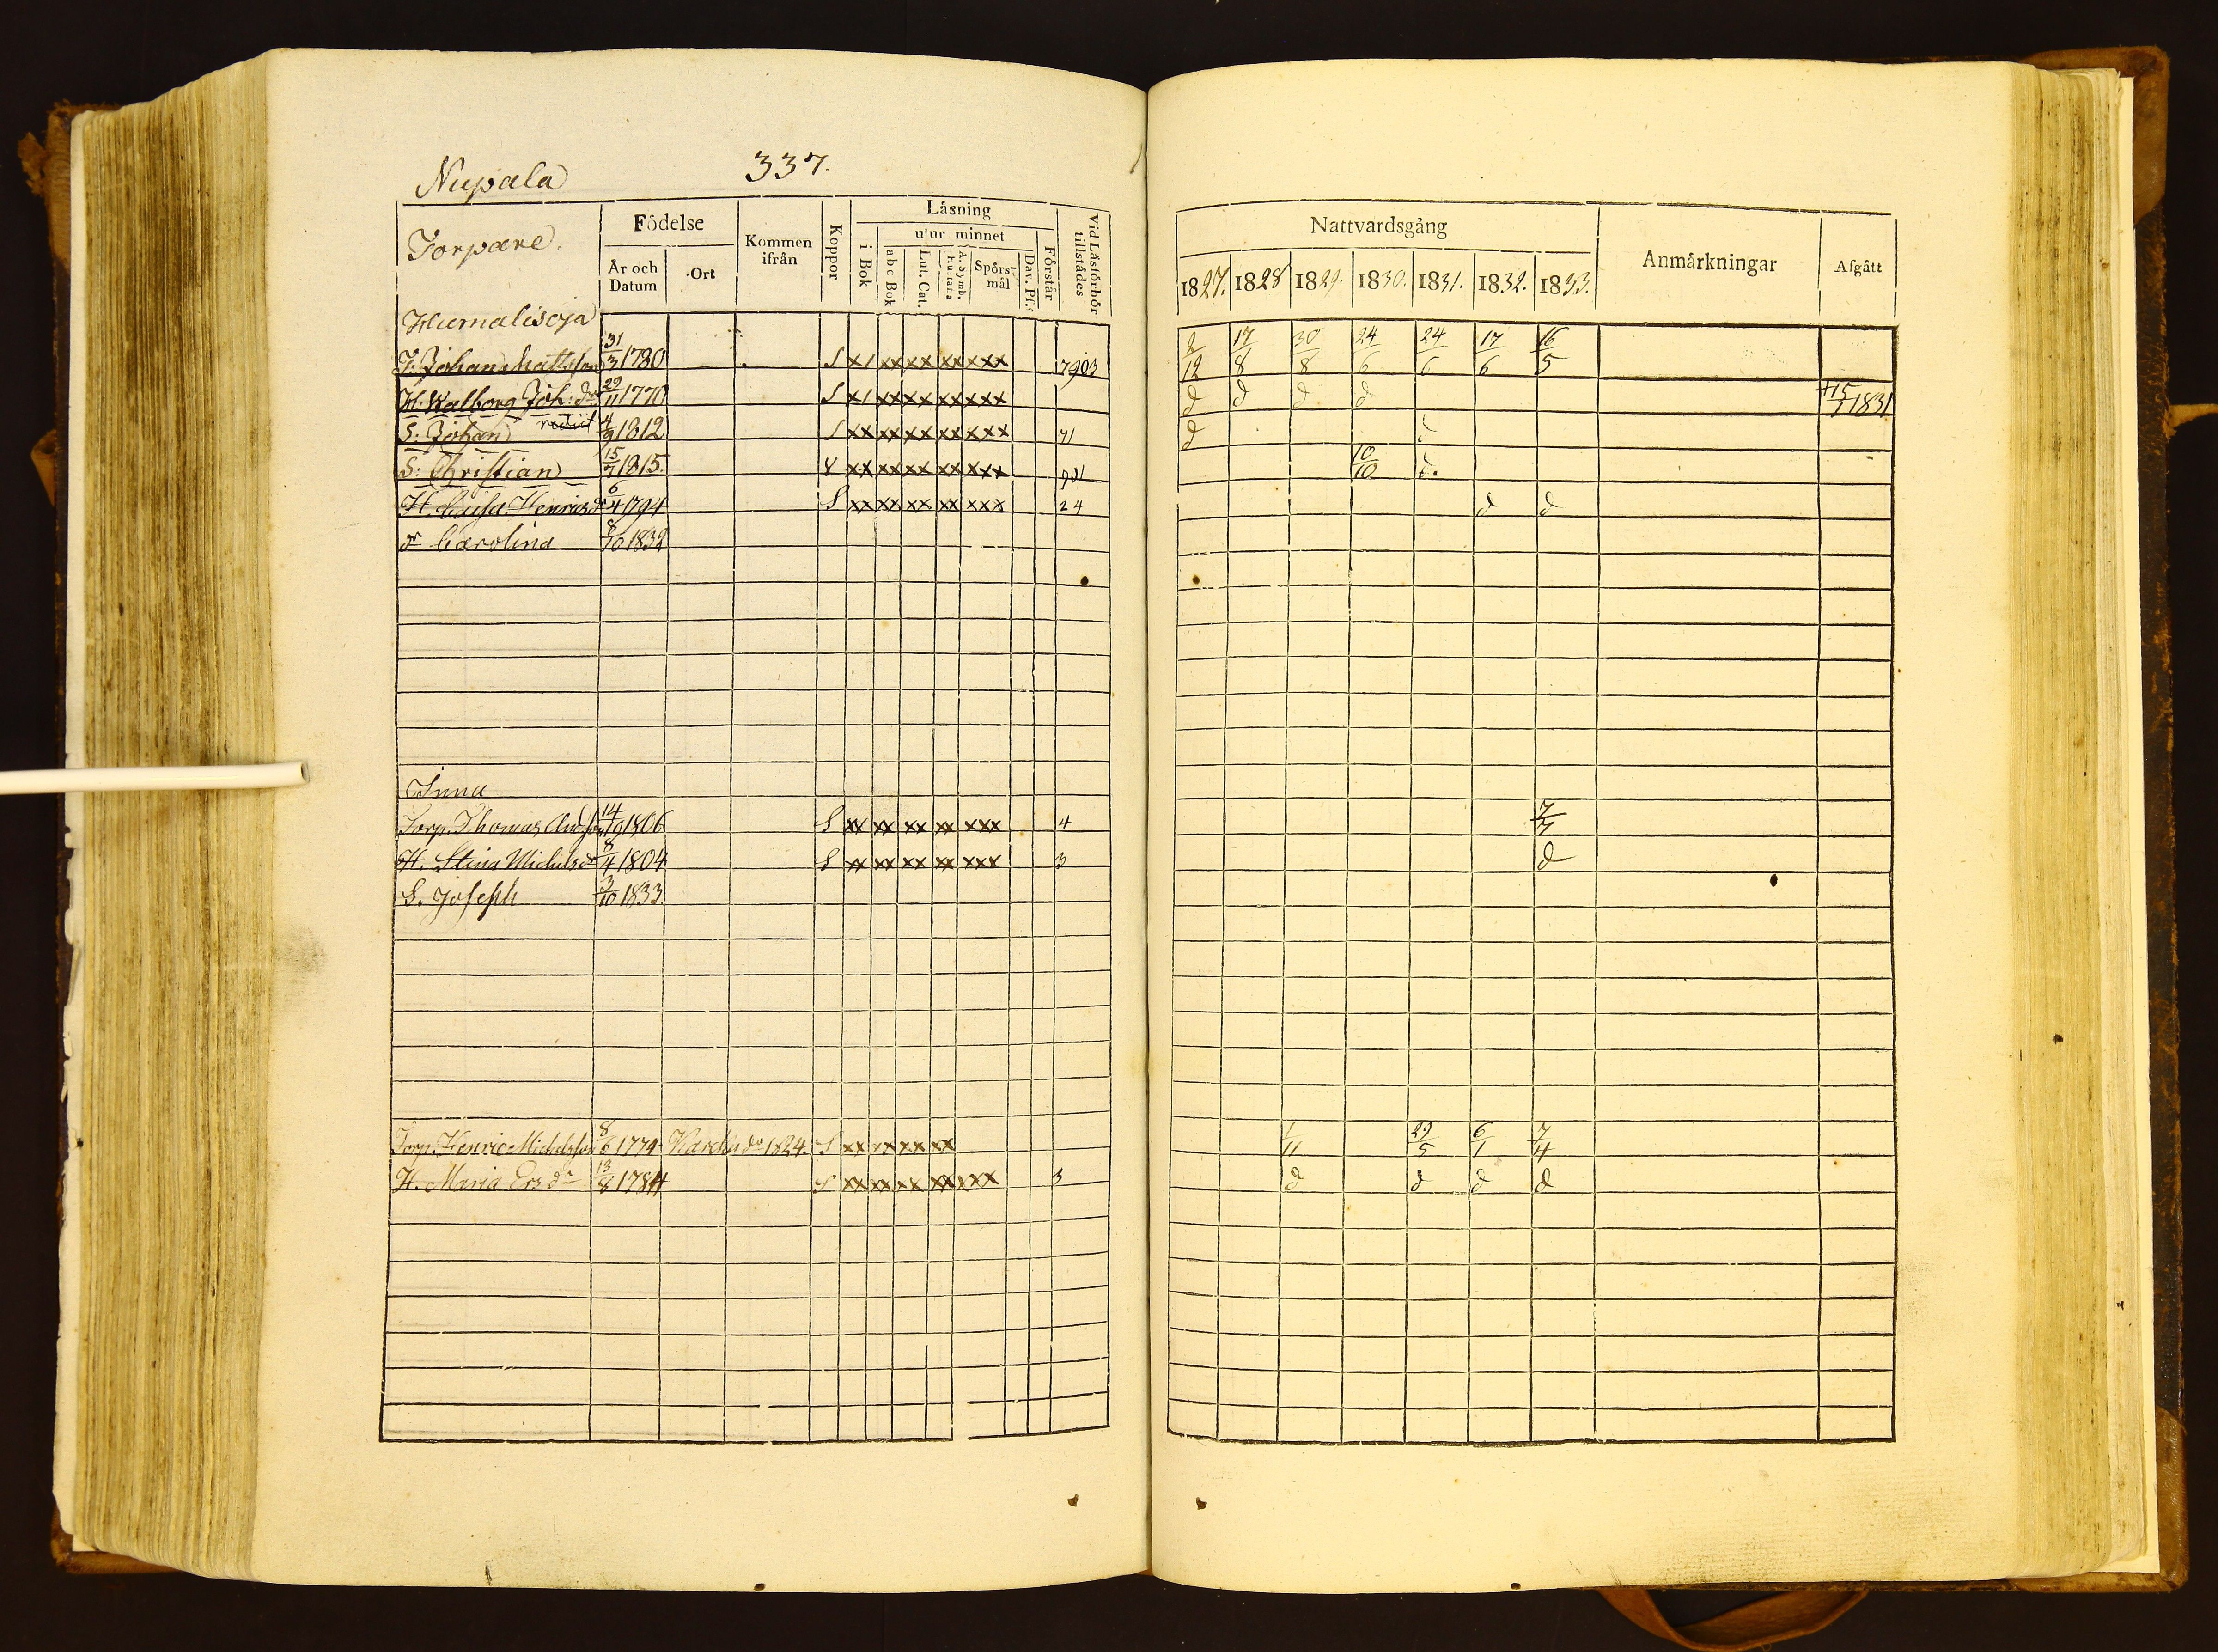 Nupala 337.
Torpare.
Födelse
År och Datum
Ort
Kommen ifrån
Koppor
Läsning
i Bok
utur minnet
abc Bok
Lut. Cat.
A. Symb. Hustafla
Spörsmål
Dav. Ps.
Förstår
Vid Läsförhör tillstädes
Nattvardsgång
1827. 1828 1829. 1830. 1831. 1832. 1833.
Anmärkningar
Afgått
Humalisoja
T. Johan Mattsson 31/3 1780 S x/ xx xx xx xxx 7903 2/12 17/8 30/8 24/6 24/6 17/6 16/5
H. Walborg Joh: dr 29/11 1770 S x/ xx xx xx xxx d d d d + 15/1 1831
S: Johan 4/9 1812 S xx xx xx xx xxx 71 d d
S: Christian 15/7 1815. xx xx xx xx xxx 901 10/10 d.
H. Henricsdr 6/4 1794 S xx xx xx xx xxx 24 d d
dr Carolina 8/10 1832
Inna
Torp. Thomas Andsson 14/9 1806 S xx xx xx xx xxx 4 7/7
H. Stina Michelsdr 8/4 1804 S xx xx xx xx xxx 3 d
S. Joseph 3/10 1833.
Torp. Henric Michelsson 8/6 1774 1824. S xx xx xx xx 1/11 29/5 6/1 7/4
H. Maria Ersdr 13/8 1784 S xx xx xx xx xxx 3 d d d d